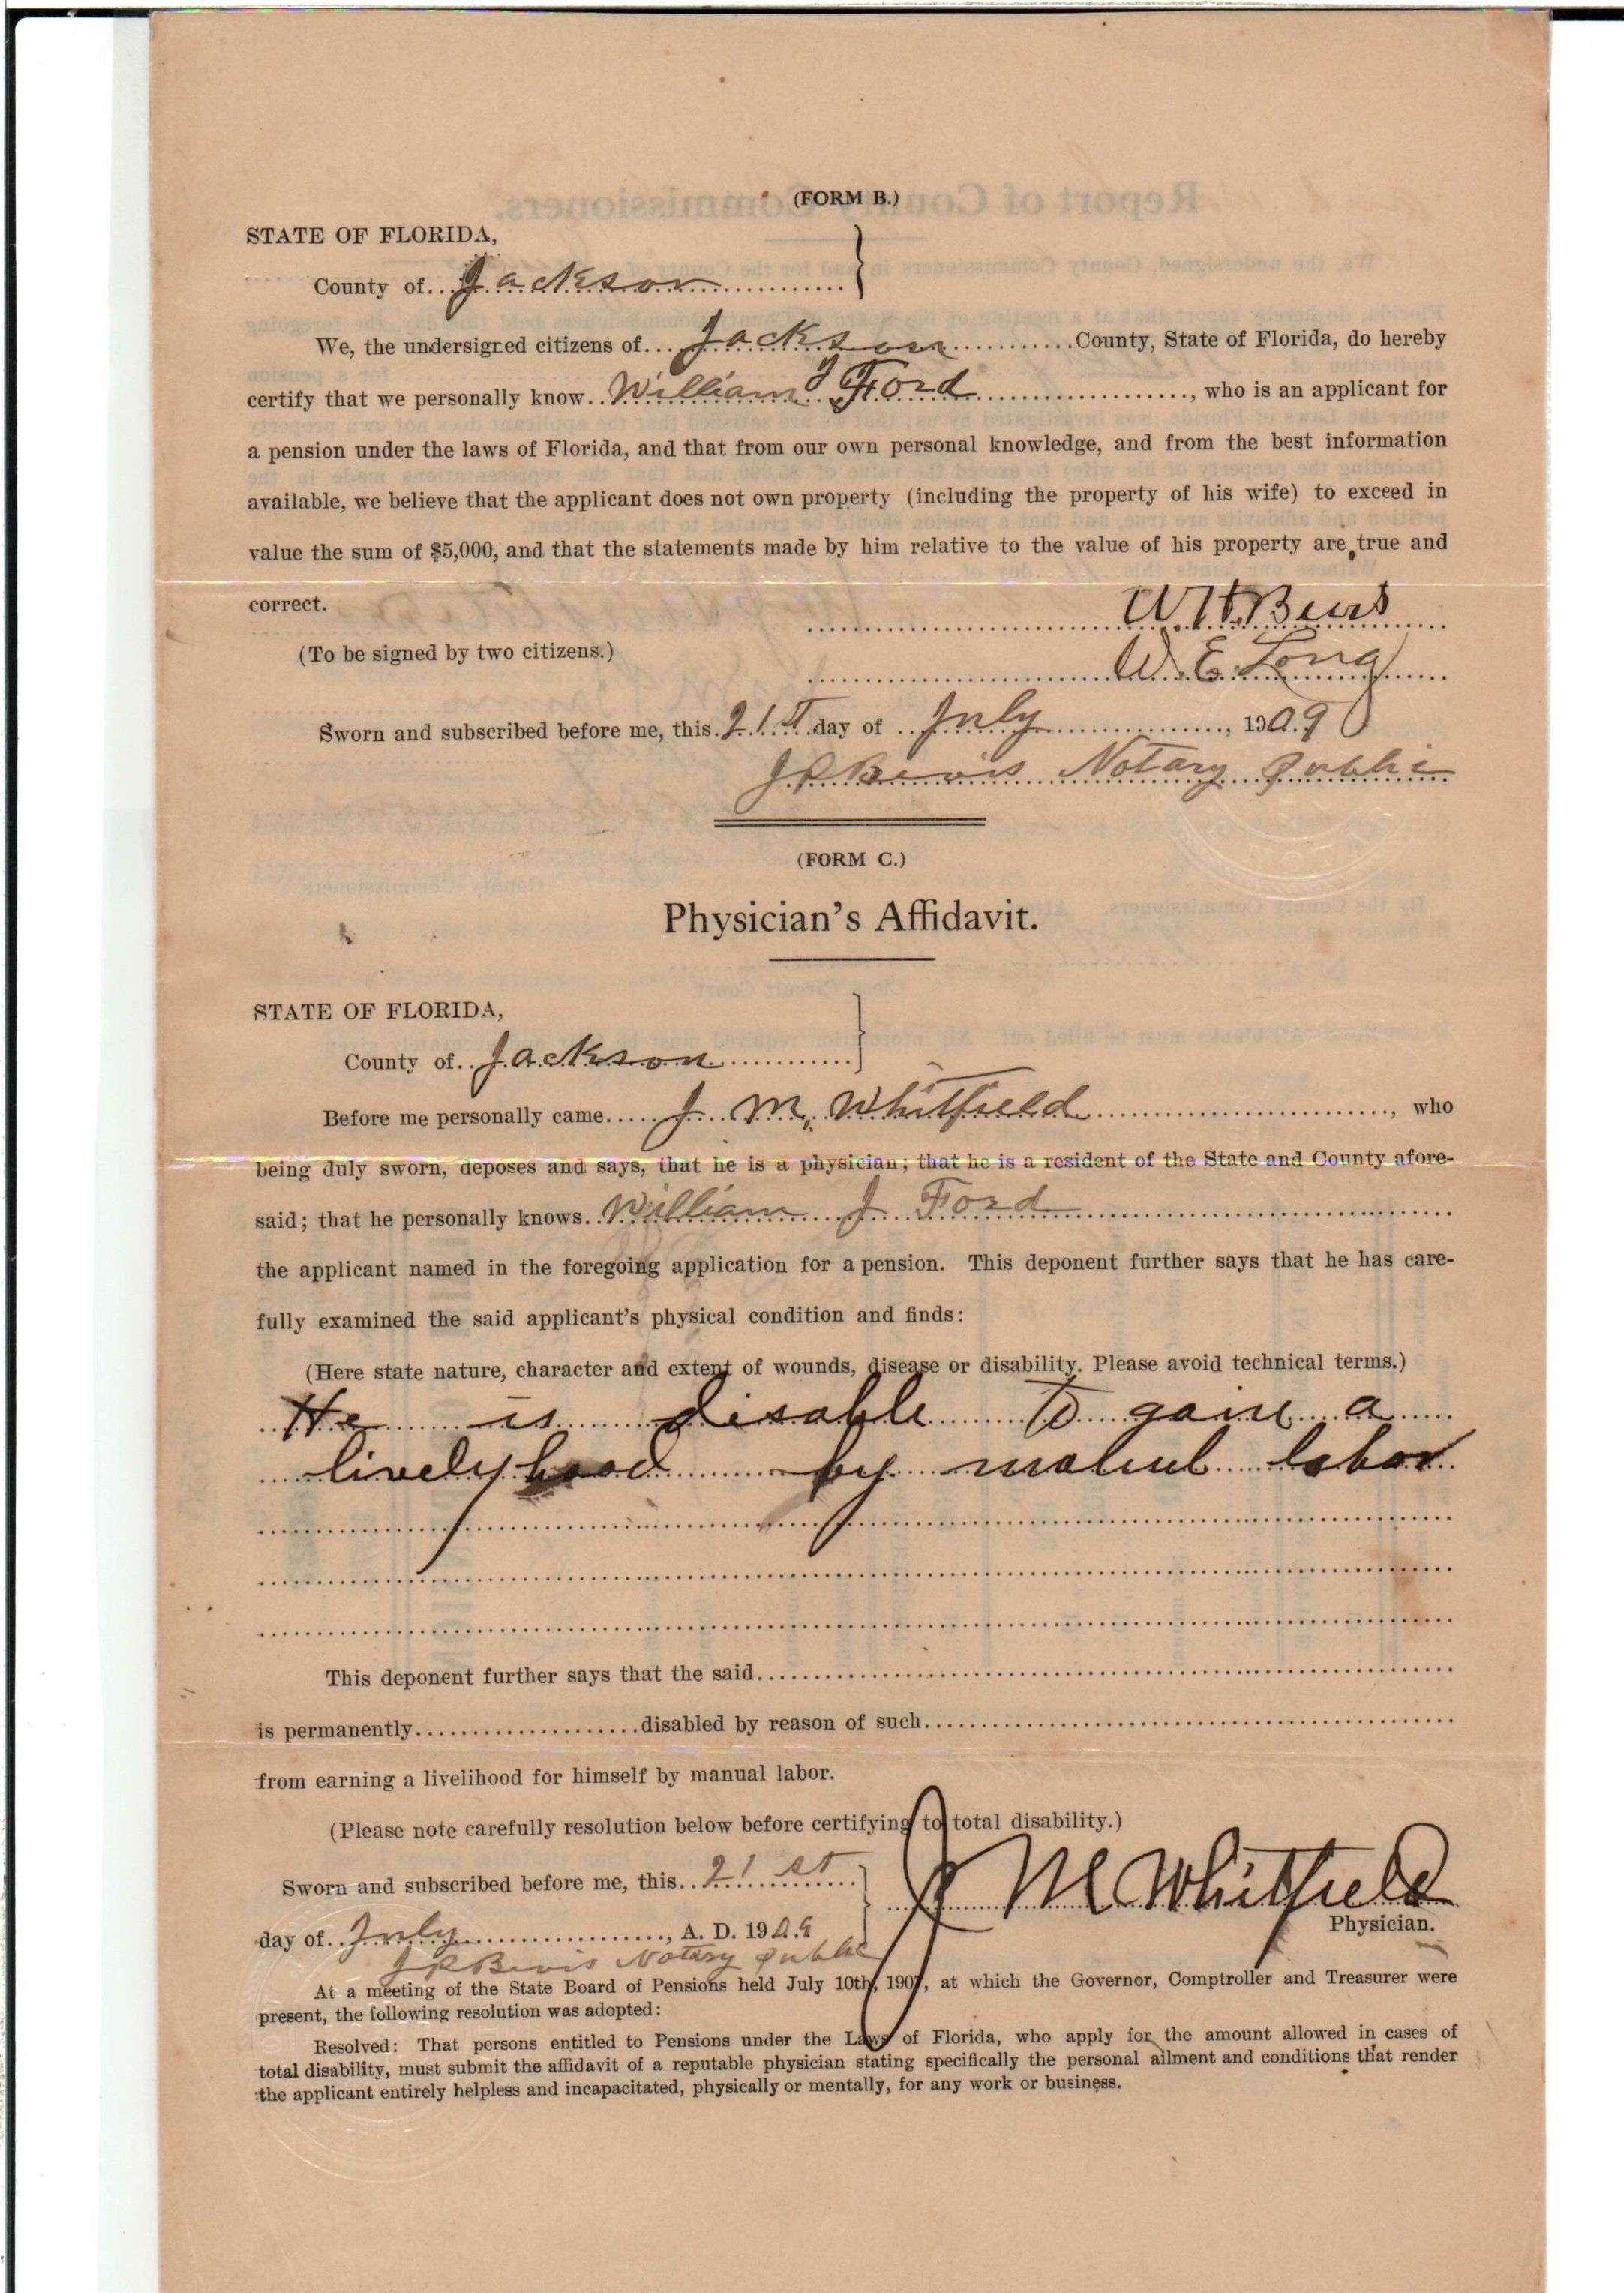 (FORM B.)
STATE OF FLORIDA,
County of Jackson
We, the undersigned citizens of Jackson County, State of Florida, do hereby
certify that we personally know William J Ford, who is an applicant for
a pension under the laws of Florida, and that from our own personal knowledge, and from the best information
available, we believe that the applicant does not own property (including the property of his wife) to exceed in
value the sum of $5,000, and that the statements made by him relative to the value of his property are true and
correct.
W. H.
(To be signed by two citizens.)
W. E. Long
Sworn and subscribed before me, this 21st day of July, 1909
J R Bevis Notary Public
(FORM C.)
Physician's Affidavit.
STATE OF FLORIDA,
County of Jackson
Before me personally came J. M. Whitfield, who
being duly sworn, deposes and says, that he is a physician; that he is a resident of the State and County afore-
said; that he personally knows William J Ford
the applicant named in the foregoing application for a pension. This deponent further says that he has care-
fully examined the said applicant's physical condition and finds:
(Here state nature, character and extent of wounds, disease or disability. Please avoid technical terms.)
He is disable to gain a
livelyhood by labor
This deponent further says that the said
is permanently disabled by reason of such
from earning a livelihood for himself by manual labor.
(Please note carefully resolution below before certifying to total disability.)
Sworn and subscribed before me, this 21st
J M Whitfield
Physician.
day of July, A. D. 1909
J R Bevis Notary Public
At a meeting of the State Board of Pensions held July 10th, 1907, at which the Governor, Comptroller and Treasurer were
present, the following resolution was adopted:
Resolved: That persons entitled to Pensions under the Laws of Florida, who apply for the amount allowed in cases of
total disability, must submit the affidavit of a reputable physician stating specifically the personal ailment and conditions that render
the applicant entirely helpless and incapacitated, physically or mentally, for any work or business.